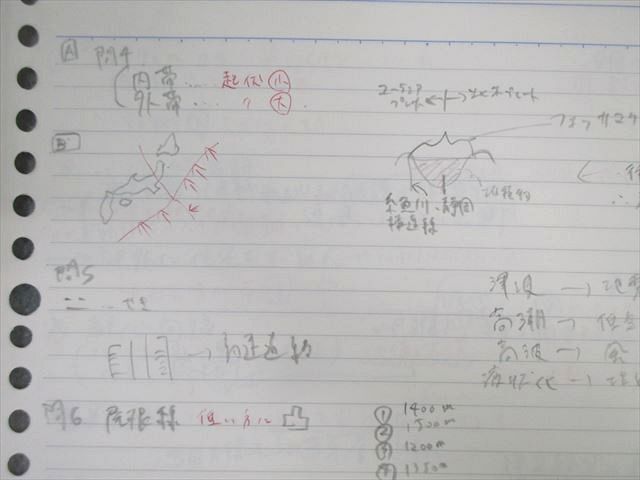 A 問4
内帯 … 起伏 小
外帯 … 〃 大
ユーラシア プレート ←|→ 北米プレート
フォッサマグ
B
糸魚川・静岡
構造線
堆積物
問5
津波 →
高潮 →
高波 →
液状化 →
問6 尾根線 低い方に 凸
① 1400m
② 1500m
③ 1200m
④ 1350m